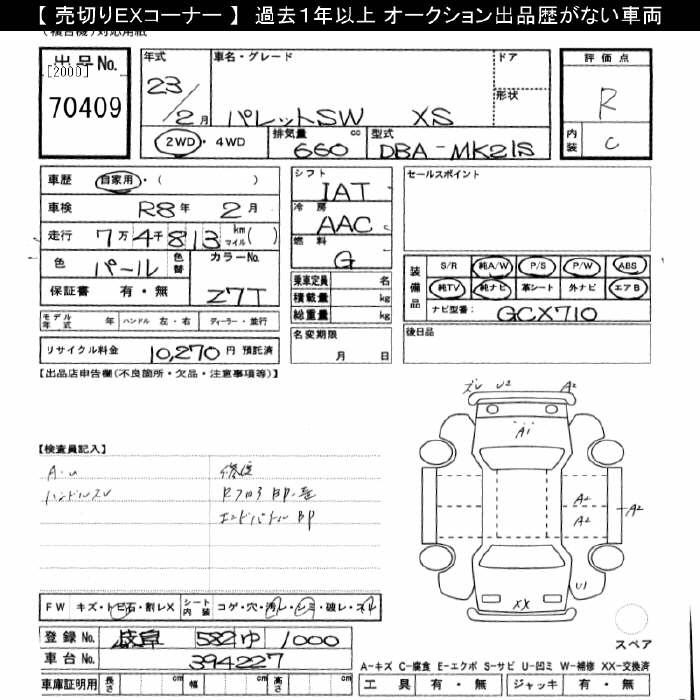 【 売切りEXコーナー 】 過去1年以上 オークション出品歴がない車両
出品No.
[2000]
70409
年式
23/2月
車名・グレード
パレットSW XS
ドア
形状
評価点
R
内装 C
2WD・4WD
排気量 cc 660
型式 DBA-MK21S
車歴 自家用・( )
車検 R8年 2月
走行 7万4千813 km マイル( )
色 パール 色替
カラーNo. Z7T
保証書 有・無
シフト IAT
冷房 AAC
燃料 G
乗車定員 名
積載量 kg
総重量 kg
名変期限 月 日
セールスポイント
装備品
S/R 純A/W P/S P/W ABS
純TV 純ナビ 革シート 外ナビ エアB
ナビ型番: GCX710
後日品
モデル年式 年 ハンドル 左・右 ディーラー・並行
リサイクル料金 10,270円 預託済
【出品店申告欄(不良箇所・欠品・注意事項等)】
【検査員記入】
A.U
ハンドルスレ
修復
エンドパネルBP
ズレ U2 A2
A1
A2
A2
A2
U1
XX
スペア
FW キズ・トビ石・割レX シート内装 コゲ・穴・汚レ・シミ・破レ・スレ
登録No. 岐阜 582 ゆ 1000
車台No. 394227
車庫証明用 長さ cm 幅 cm 高さ cm
A-キズ C-腐食 E-エクボ S-サビ U-凹ミ W-補修 XX-交換済
工具 有・無 ジャッキ 有・無